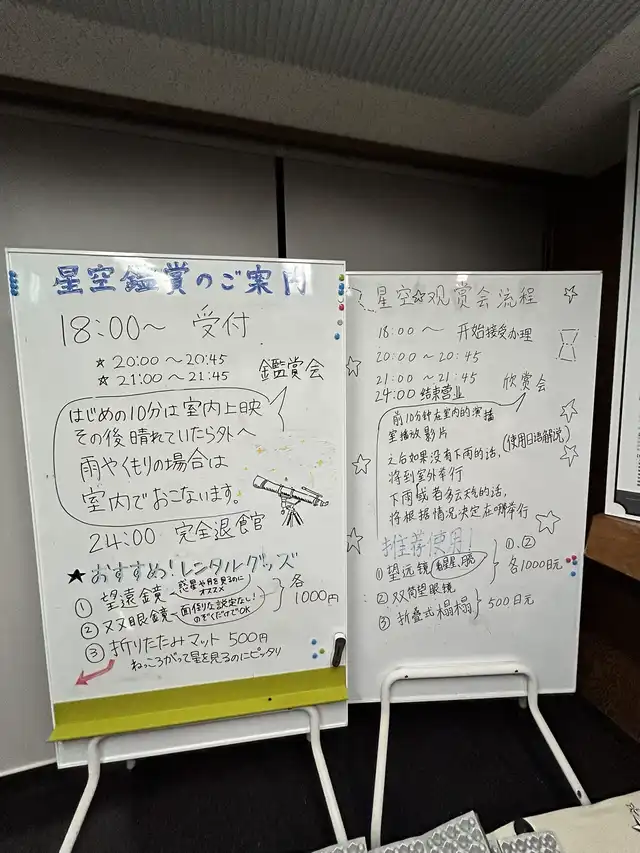 星空鑑賞のご案内
18:00〜 受付
★ 20:00 〜 20:45
★ 21:00 〜 21:45
鑑賞会
はじめの10分は室内上映
その後晴れていたら外へ
雨やくもりの場合は
室内でおこないます。
24:00 完全退食官
★おすすめ!レンタルグッズ
① 望遠鏡 惑星や月を見るのに
オススメ
② 双眼鏡 面倒な設定なし!
のぞくだけでOK
各
1000円
③ 折りたたみマット 500円
ねっころがって星を見るのにピッタリ
星空☆观赏会流程
18:00 〜 开始接受办理
20:00 〜 20:45
21:00 〜 21:45
欣赏会
24:00 结束营业
前10分钟在室内的演播
室播放影片
(使用日语解说)
之后如果没有下雨的话,
将到室外举行
下雨或者多云天气的话,
将根据情况决定在哪举行
推荐使用!
① 望远镜
② 双筒望眼镜
①、②
各1000日元
③ 折叠式榻榻
500日元